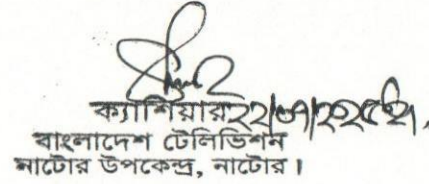 ক্যাশিয়ার
বাংলাদেশ টেলিভিশন
নাটোর উপকেন্দ্র, নাটোর।